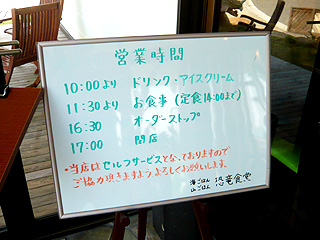 営業時間
10:00より ドリンク・アイスクリーム
11:30より お食事(定食14:00まで)
16:30 オーダーストップ
17:00 閉店
・当店はセルフサービスとなっておりますので
ご協力頂きますようよろしくお願いします。
海ごはん
山ごはん 恐竜食堂